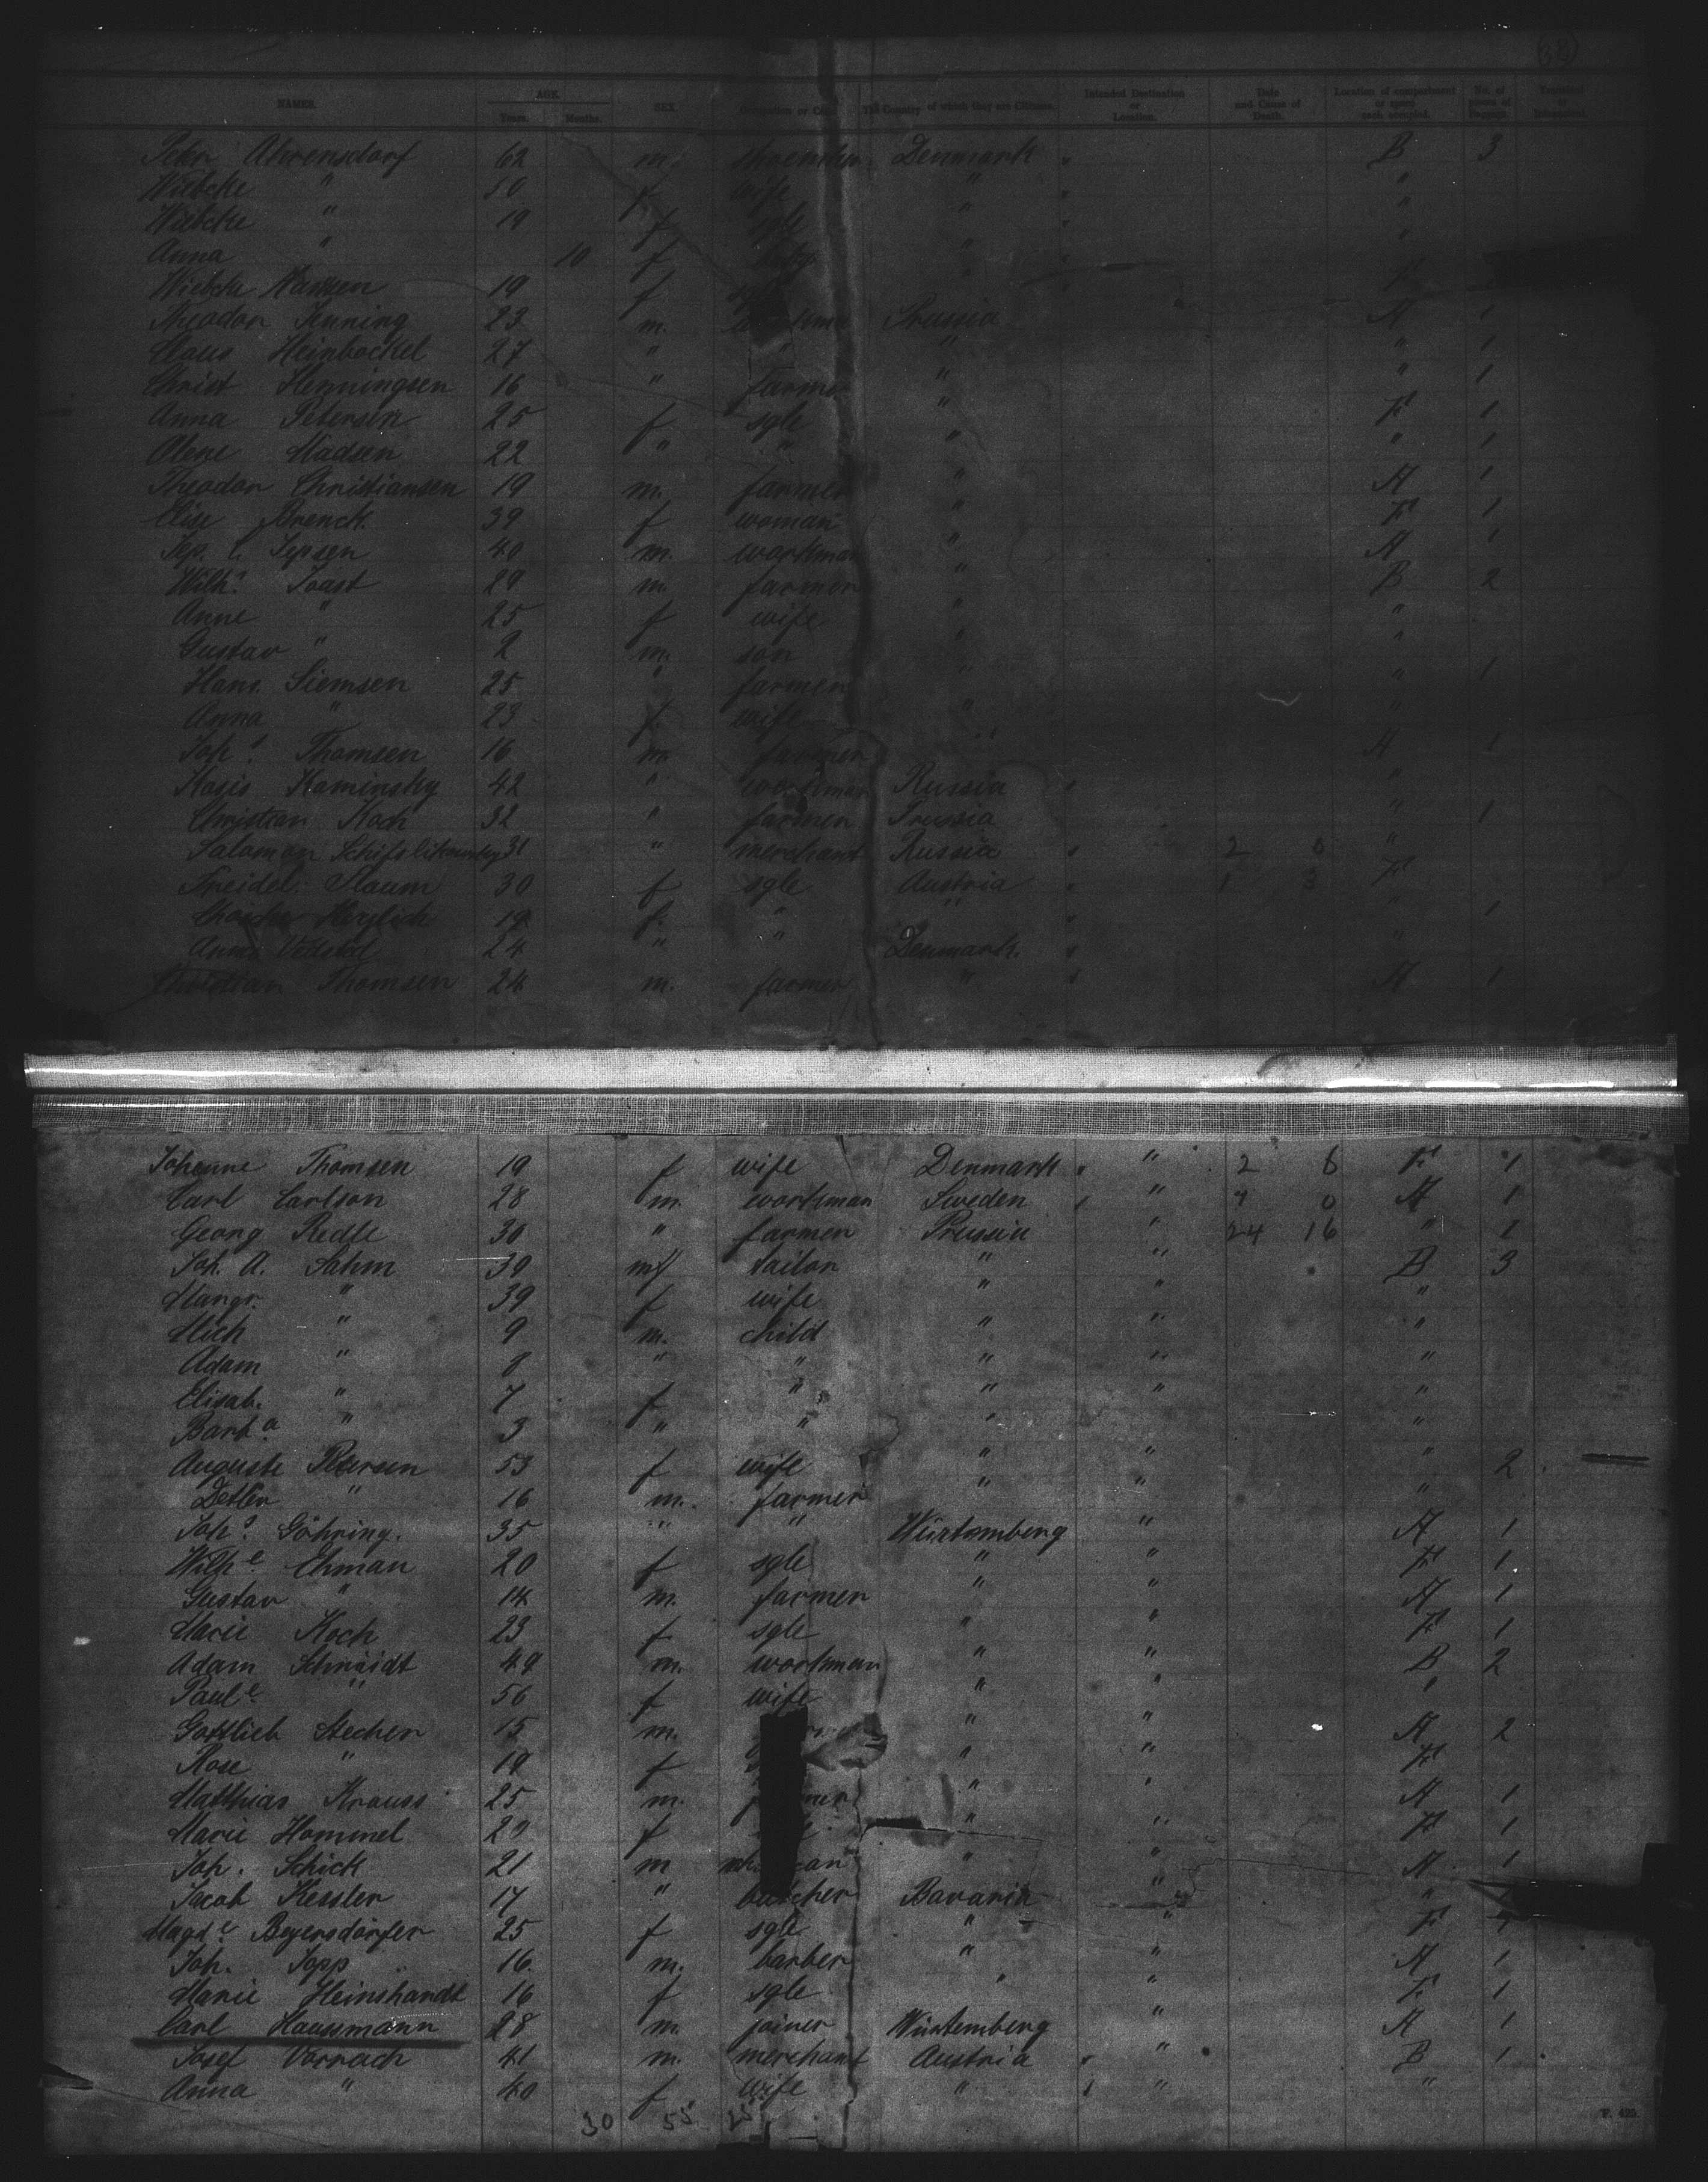 (38)
NAMES. AGE. Years. Months. SEX. Occupation or The Country of which they are Citizens. Intended Destination or Location. Date and Cause of Death. Location of compartment or space each occupied. No. of pieces of Baggage.
Peter Ahrensdorf 62 m. Denmark B 3
Wiebcke " 50 f wife " "
Wiebcke " 19 f sgle " "
Anna " 10 f "
Wiebche Hansen 19 f
Theodor Henning 23 m. Prussia A 1
Claus Heinbockel 27 " " " " 1
Christ Henningsen 16 " farmer " " 1
Anna Petersen 25 f sgle " F 1
Olene Madsen 22 " " " " 1
Theodor Christiansen 19 m. farmer " A 1
Elise Brenck 39 f woman " F 1
Jep. C. Jepsen 40 m. workman " A 1
Wilh. Joast 29 m. farmer " B 2
Anne " 25 f wife " "
Gustav " 2 m. son " "
Hans Siemsen 25 " farmer " " 1
Anna " 23 f. wife " "
Joh. Thomsen 16 m. farmer " A 1
Kasis Kaminsky 42 " workman Russia "
Christian Koch 32 " farmer Prussia " 1
Salomon 31 " merchant Russia 2 0 "
Freidel Flaum 30 f sgle Austria 1 3 F
Herzlich 19 f. " " " 1
Anna 24 " " Denmark. "
Christian Thomsen 24 m. farmer " A 1
Johanne Thomsen 19 f wife Denmark " 2 6 F 1
Carl Carlson 28 m. workman Sweden " 7 0 A 1
Georg Redle 30 " farmer Prussia " 24 16 " 1
Joh. A. Sahm 39 m tailor " " B 3
Margr. " 39 f wife " " "
Mich " 9 m. child " " "
Adam " 8 " " " " "
Elisab. " 7 f " " " "
Barb.a " 3 " " " "
Auguste Petersen 53 f wife " " " 2
Detlev " 16 m. farmer " " "
Joh.s Göhring. 35 " " Würtemberg " A 1
Wilh.e Ehman 20 f sgle " " F 1
Gustav " 14 m. farmer " " A 1
Marie Koch 23 f sgle " " F 1
Adam Schmidt 49 m. workman " " B 2
Paul.e " 56 f wife " " "
Gottlieb Stecher 15 m. " " A 2
Rose " 19 f " " F
Matthias Krauss 25 m. " " A 1
Marie Hommel 20 f " " F 1
Joh. Schick 21 m " " A 1
Jacob Kessler 17 " butcher Bavaria " "
Magd.e Beyersdörfer 25 f sgle " " F 1
Joh. Popp 16 m. barber " " A 1
Marie Heinshandt 16 f sgle " " F 1
Carl Haussmann 28 m. joiner Würtemberg " A 1
Josef Vornach 41 m. merchant Austria " B 1
Anna " 40 f wife " " "
30 55 25